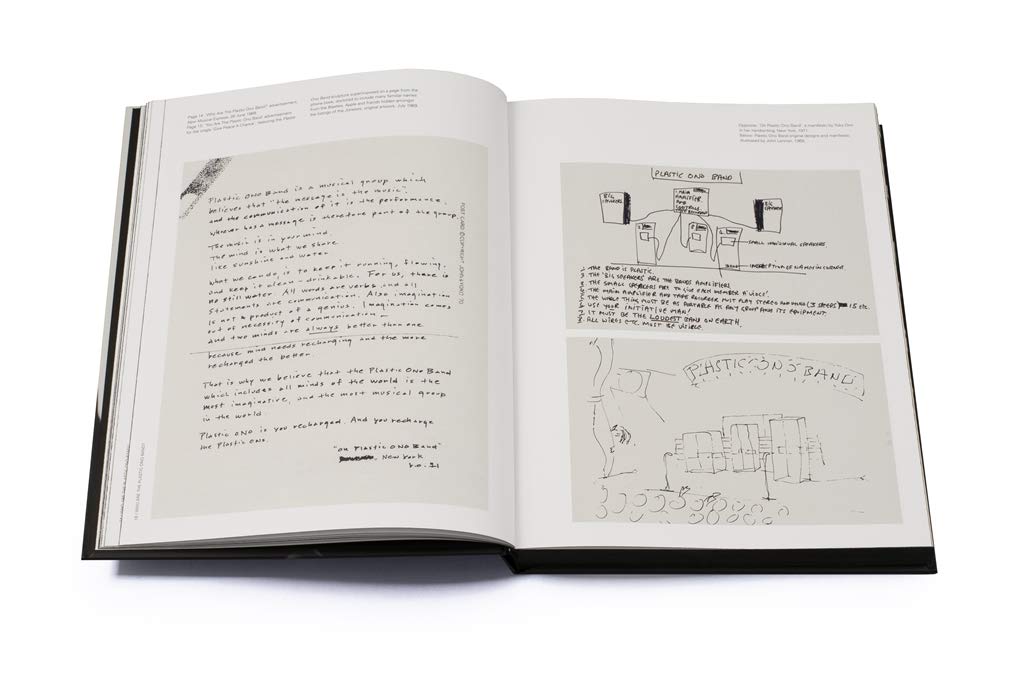 Page 14: 'Who Are The Plastic Ono Band?' advertisement,
New Musical Express, 28 June 1969.
Page 15: 'You Are The Plastic Ono Band' advertisement
for the single 'Give Peace A Chance', featuring the Plastic
Ono Band sculpture superimposed on a page from the
phone book, doctored to include many familiar names
from the Beatles, Apple and friends hidden amongst
the listings of the Joneses; original artwork, July 1969.
Plastic Ono Band is a musical group which
believes that "the message is the music".
and the communication of it is the performance.
Whoever has a message is therefore part of the group.
The music is in your mind.
The mind is what we share
like sunshine and water
What we can do is to keep it running, flowing,
and keep it clean - drinkable. For us, there is
no still water. All words are verbs and all
statements are communication. Also, imagination
is not a product of a genius. Imagination comes
out of necessity of communication -
and two minds are always better than one
because mind needs recharging and the more
recharged the better.
That is why we believe that the Plastic Ono Band
which includes all minds of the world is the
most imaginative, and the most musical group
in the world.
Plastic Ono is you recharged. And you recharge
the Plastic Ono.
"On Plastic Ono Band"
New York
y.o. 71
POST CARD © COPYRIGHT JOHN
18 / WHO ARE THE PLASTIC ONO BAND?
WHO ARE THE PLASTIC ONO BAND?
Opposite: 'On Plastic Ono Band', a manifesto by Yoko Ono
in her handwriting, New York, 1971.
Below: Plastic Ono Band original designs and manifesto,
illustrated by John Lennon, 1969.
PLASTIC ONO BAND
BIG SPEAKERS
1. MAIN
AMPLIFIER
AND
CONTROLS
TAPE RECORDER
BIG
SPEAKER
SMALL INDIVIDUAL SPEAKERS.
INSCRIPTION OF NAMES
1. THE BAND IS PLASTIC.
2. THE 'BIG SPEAKERS' ARE THE BANDS AMPLIFIERS
3. THE SMALL SPEAKERS ARE TO GIVE EACH MEMBER A 'VOICE'.
THE MAIN AMPLIFIER AND TAPE RECORDER MUST PLAY STEREO AND MONO (3 SPEEDS 15 etc.
THE WHOLE THING MUST BE AS PORTABLE AS ANY GROUP AND ITS EQUIPMENT.
USE YOUR INITIATIVE MAN!
7. IT MUST BE THE LOUDEST BAND ON EARTH.
8. ALL WIRES ETC. MUST BE VISIBLE.
PLASTIC ONO BAND